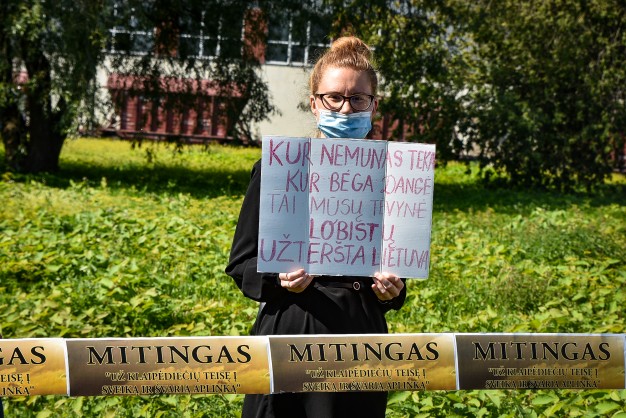 KUR NEMUNAS TEKA
KUR BĖGA DANGĖ
TAI MŪSŲ TĖVYNĖ
LOBISTŲ
UŽTERŠTA LIETUVA
GAS
TEISĘ Į
INKA"
MITINGAS
"UŽ KLAIPĖDIEČIŲ TEISĘ Į
SVEIKĄ IR ŠVARIĄ APLINKĄ"
MITINGAS
"UŽ KLAIPĖDIEČIŲ TEISĘ Į
SVEIKĄ IR ŠVARIĄ APLINKĄ"
MITINGAS
"UŽ KLAIPĖDIEČIŲ TEISĘ Į
SVEIKĄ IR ŠVARIĄ APLINKĄ"